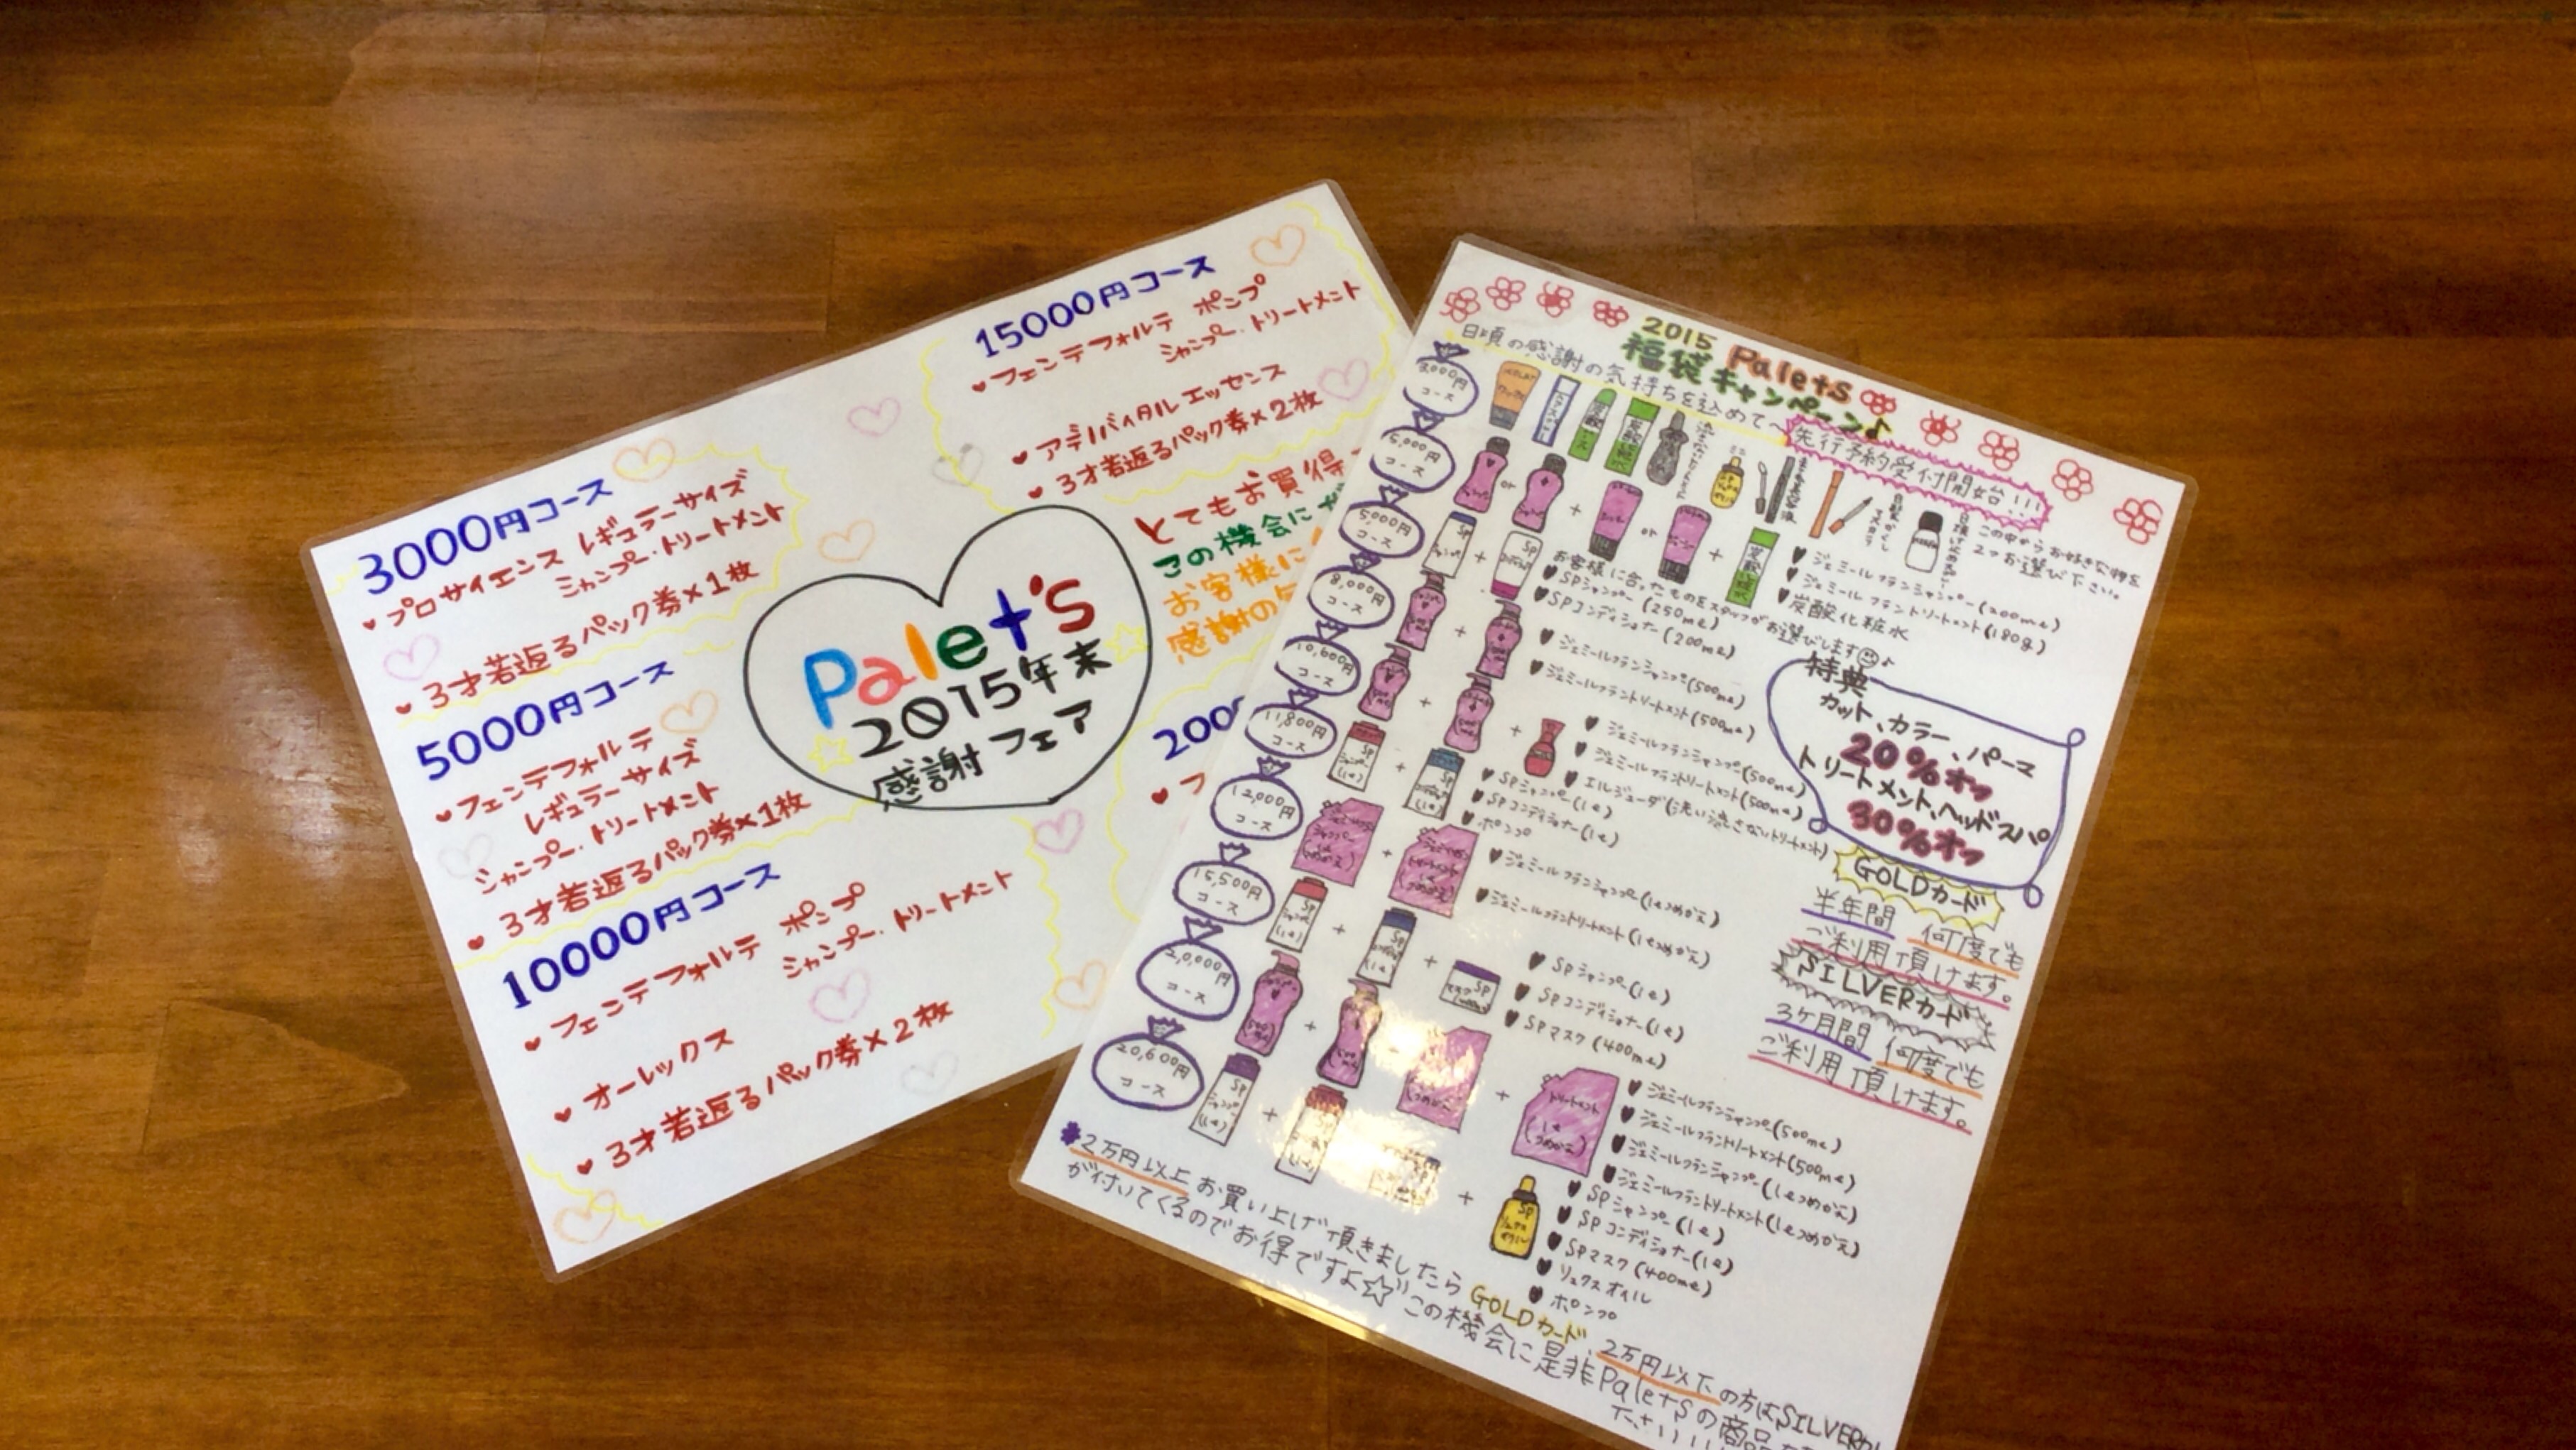 3000円コース
プロサイエンス レギュラーサイズ
シャンプー・トリートメント
3才若返るパック券×1枚
5000円コース
フェンテフォルテ
レギュラーサイズ
シャンプー・トリートメント
3才若返るパック券×1枚
10000円コース
フェンテフォルテ ポンプ
シャンプー・トリートメント
オーレックス
3才若返るパック券×2枚
Palet's
2015年末
感謝フェア
15000円コース
フェンテフォルテ ポンプ
シャンプー・トリートメント
アデノバイタルエッセンス
3才若返るパック券×2枚
とてもお買得
この機会に
お客様に
感謝の
200
フ
2015 Palets
福袋キャンペーン♪
日頃の感謝の気持ちを込めて〜
先行予約受付開始!!!
3,000円コース
この中からお好きな物を
2つお選び下さい。
5,000円コース
or
+
or
+
炭酸化粧水
ジェミールフランシャンプー(200ml)
ジェミールフラントリートメント(180g)
炭酸化粧水
5,000円コース
+
お客様に合ったものをスタッフがお選びします♪
SPシャンプー(250ml)
SPコンディショナー(200ml)
8,000円コース
+
ジェミールフランシャンプー(500ml)
ジェミールフラントリートメント(500ml)
10,600円コース
+
+
ジェミールフランシャンプー(500ml)
ジェミールフラントリートメント(500ml)
エルジューダ(洗い流さないトリートメント)
11,800円コース
+
SPシャンプー(1ℓ)
SPコンディショナー(1ℓ)
ポンプ
12,000円コース
+
ジェミールフランシャンプー(1ℓつめかえ)
ジェミールフラントリートメント(1ℓつめかえ)
15,500円コース
+
+
SPシャンプー(1ℓ)
SPコンディショナー(1ℓ)
SPマスク(400ml)
20,000円コース
+
+
トリートメント
1ℓ
(つめかえ)
ジェミールフランシャンプー(500ml)
ジェミールフラントリートメント(500ml)
ジェミールフランシャンプー(1ℓつめかえ)
ジェミールフラントリートメント(1ℓつめかえ)
20,600円コース
+
+
SPシャンプー(1ℓ)
SPコンディショナー(1ℓ)
SPマスク(400ml)
リュクスオイル
ポンプ
特典
カット、カラー、パーマ
20%オフ
トリートメント、ヘッドスパ
30%オフ
GOLDカード
半年間 何度でも
ご利用頂けます。
SILVERカード
3ヶ月間 何度でも
ご利用頂けます。
2万円以上お買い上げ頂きましたらGOLDカード、2万円以下の方はSILVER
が付いてくるのでお得ですよ☆この機会に是非Paletsの商品